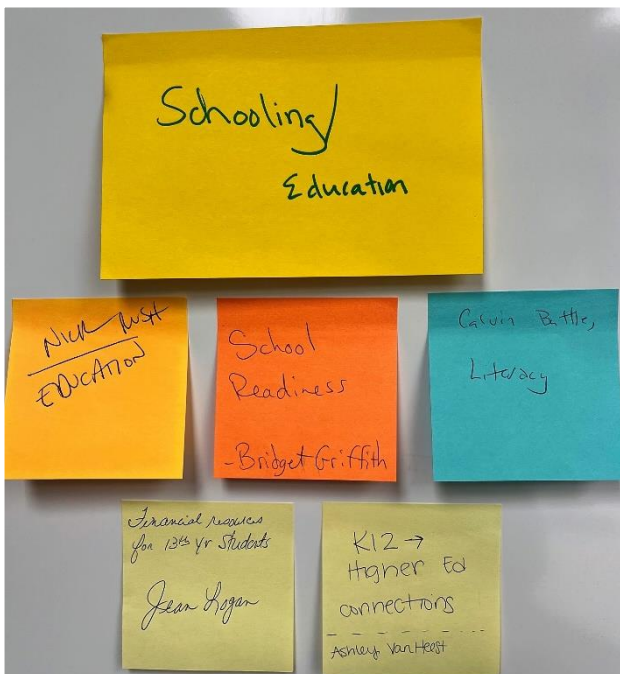 Schooling/
Education
NICK RUSH
EDUCATION
School
Readiness
-Bridget Griffith
Calvin Battle,
Literacy
Financial resources
for 13th yr Students
Jean Logan
K12 →
Higher Ed
connections
Ashley VanHeest